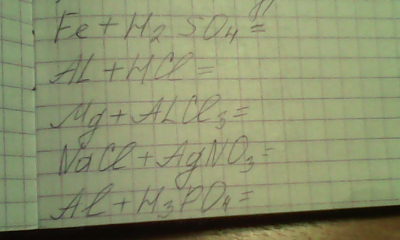 Fe + H2SO4 =
AL + HCl =
Mg + ALCl3 =
NaCl + AgNO3 =
Al + H3PO4 =